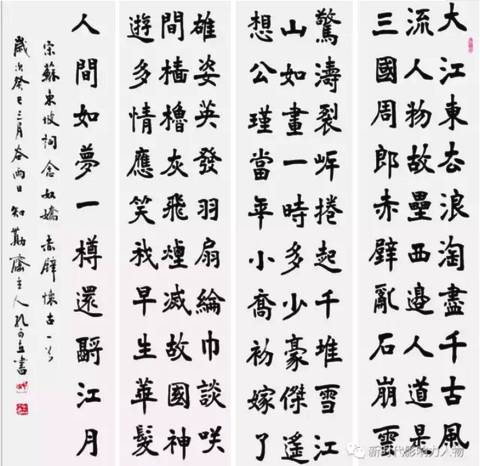 大江東去浪淘盡千古風
流人物故壘西邊人道是
三國周郎赤壁亂石崩雲
驚濤裂岸捲起千堆雪江
山如畫一時多少豪傑遙
想公瑾當年小喬初嫁了
雄姿英發羽扇綸巾談咲
間檣櫓灰飛煙滅故國神
遊多情應笑我早生華髮
人間如夢一樽還酹江月
宋蘇東坡詞念奴嬌赤壁懷古一首
歲次癸巳三月谷雨日知勤齋主人孔書
新时代影响力人物